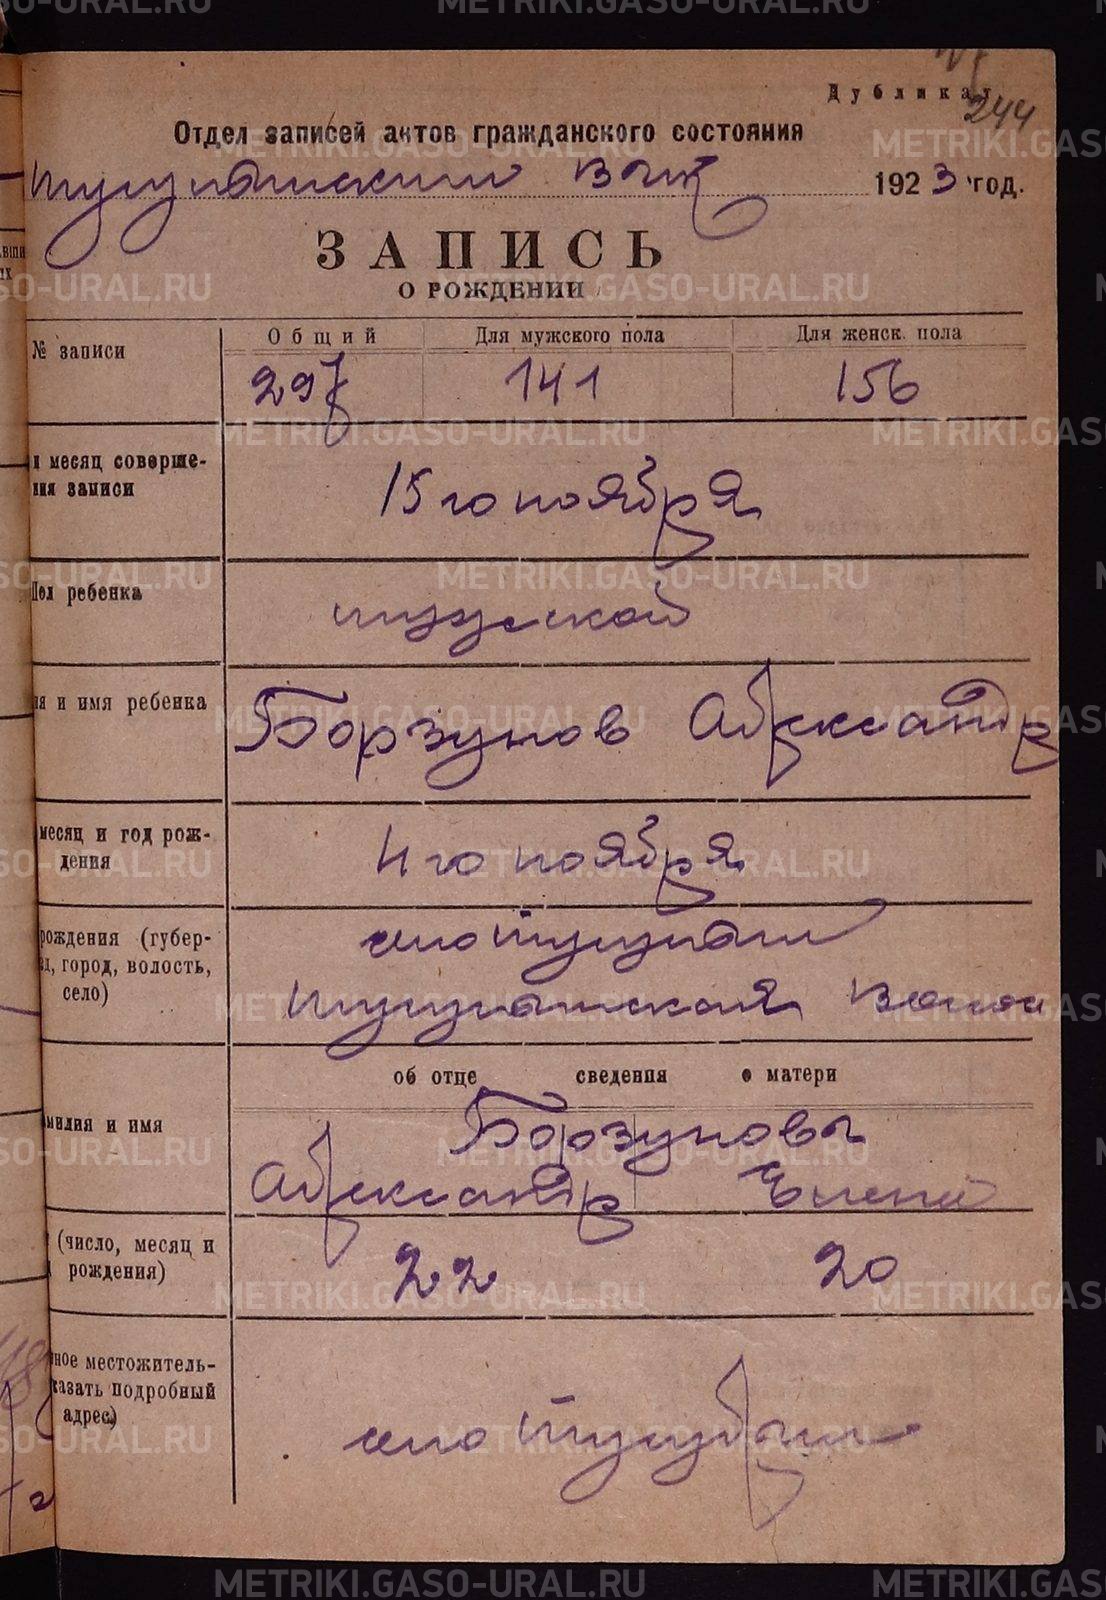 Дубликат
244
Отдел записей актов гражданского состояния
1923 год.
ЗАПИСЬ
О РОЖДЕНИИ
№ записи
Общий Для мужского пола Для женск. пола
297 141 156
месяц соверше-
ния записи
15го ноября
Пол ребенка
мужской
ия и имя ребенка
Борзунов Александр
месяц и год рож-
дения
4го ноября
рождения (губер-
зд, город, волость,
село)
село
об отце сведения о матери
амилия и имя
Борзуновы
Александр Елена
(число, месяц и
рождения)
22 20
ное местожитель-
казать подробный
адрес)
село
METRIKI.GASO-URAL.RU